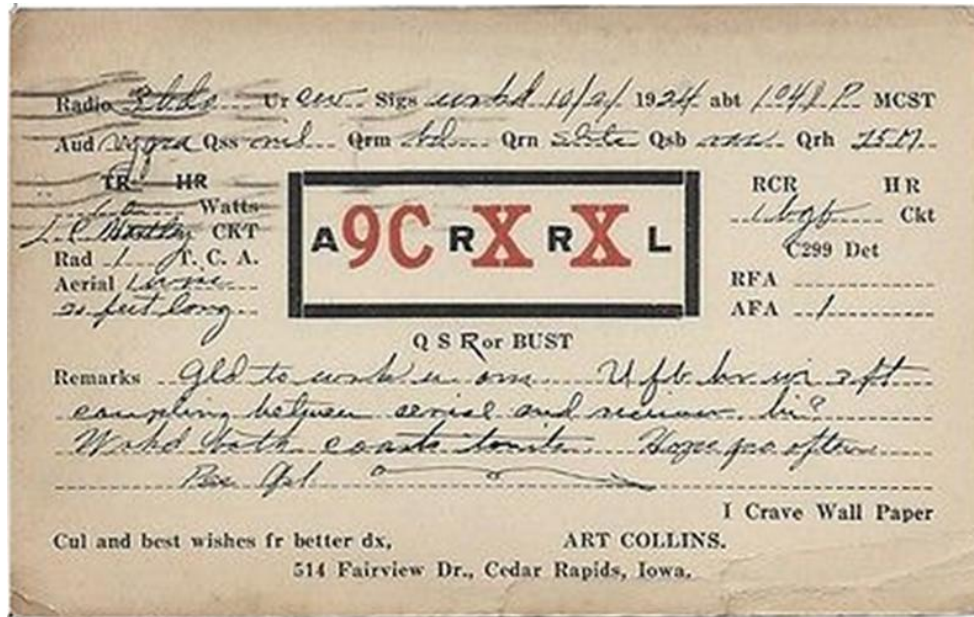 Radio 3bdo Ur cw Sigs wrkd 10/2/ 1924 abt 1041 P. MCST
Aud Qss nil Qrm bd Qrn slite Qsb Qrh 75 M.
TR HR
Watts
CKT
Rad 1 T. C. A.
Aerial 1 wire
20 feet long
A9CRXRXL
RCR HR
1bgf Ckt
C299 Det
RFA
AFA 1
QSR or BUST
Remarks Gld to wrk u om U fb hr wi 2 ft
coupling between aerial and receiver hi?
Wrkd both coasts tonite Hope qso often
Pse Qsl
I Crave Wall Paper
Cul and best wishes fr better dx, ART COLLINS.
514 Fairview Dr., Cedar Rapids, Iowa.